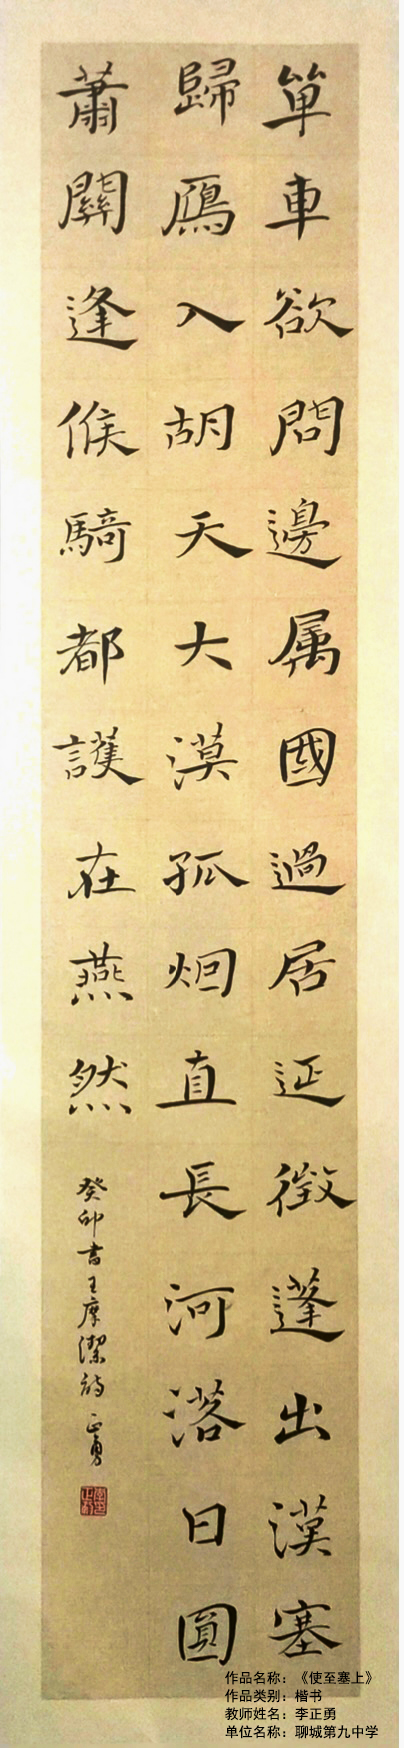 單車欲問邊属國過居延徵蓬出漢塞
歸鴈入胡天大漠孤烟直長河落日圓
蕭關逢候騎都護在燕然
癸卯書王摩潔詩 正勇
作品名称：《使至塞上》
作品类别：楷书
教师姓名：李正勇
单位名称：聊城第九中学